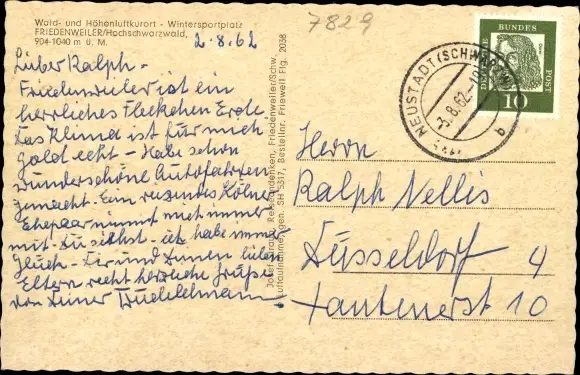 Wald- und Höhenluftkurort - Wintersportplatz
FRIEDENWEILER/Hochschwarzwald,
904-1040 m ü. M.
2.8.62
7829
Lieber Ralph -
Friedenweiler ist ein
herrliches Fleckchen Erde.
Das Klima ist für mich
gold echt - Habe schon
wunderschöne Autofahrten
gemacht - Ein reizendes Kölner
Ehepaar nimmt mich immer
mit - Du siehst - ich habe immer
Glück - Dir und Deinen lieben
Eltern recht herzliche Grüße
von Deiner
Reiseandenken, Friedenweiler/Schw.
Luftaufnahme, gen. CH 5317, Bestellnr. Frieweil Flg. 2038
DEUTSCHE BUNDESPOST
10
NEUSTADT (SCHWARZW)
Herrn
Ralph Nellis
Düsseldorf 4
Xantenerst 10